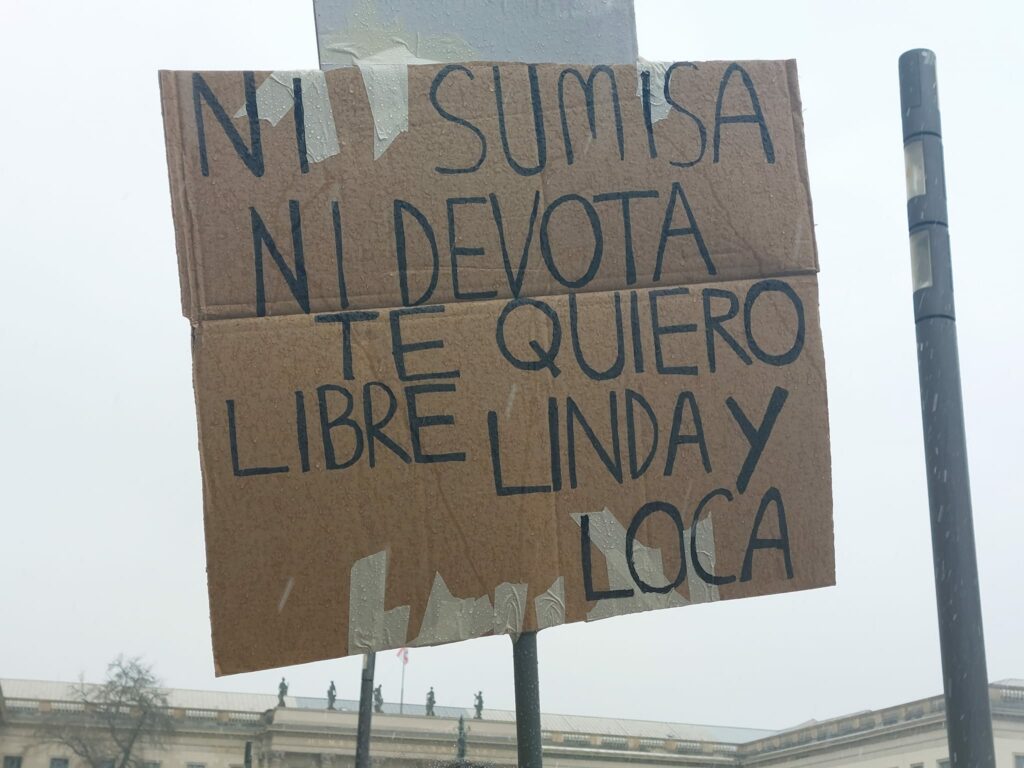 NI SUMISA
NI DEVOTA
TE QUIERO
LIBRE LINDA Y
LOCA